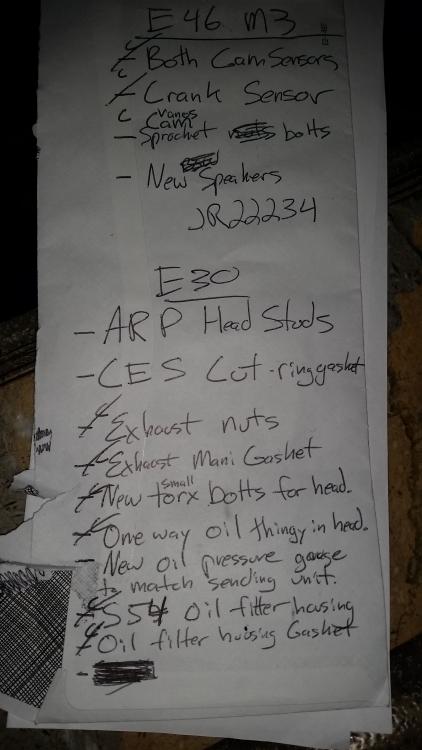 E46 M3
- Both Cam Sensors
- Crank Sensor
vanos
Cam
- Sprocket bolts
- New Speakers
JR22234
E30
- ARP Head Studs
- CES Cut-ring gasket
- Exhaust nuts
- Exhaust Mani Gasket
small
- New torx bolts for head.
- One way oil thingy in head.
- New oil pressure gauge
to match sending unit.
- S54 Oil filter housing
- Oil filter housing Gasket
-